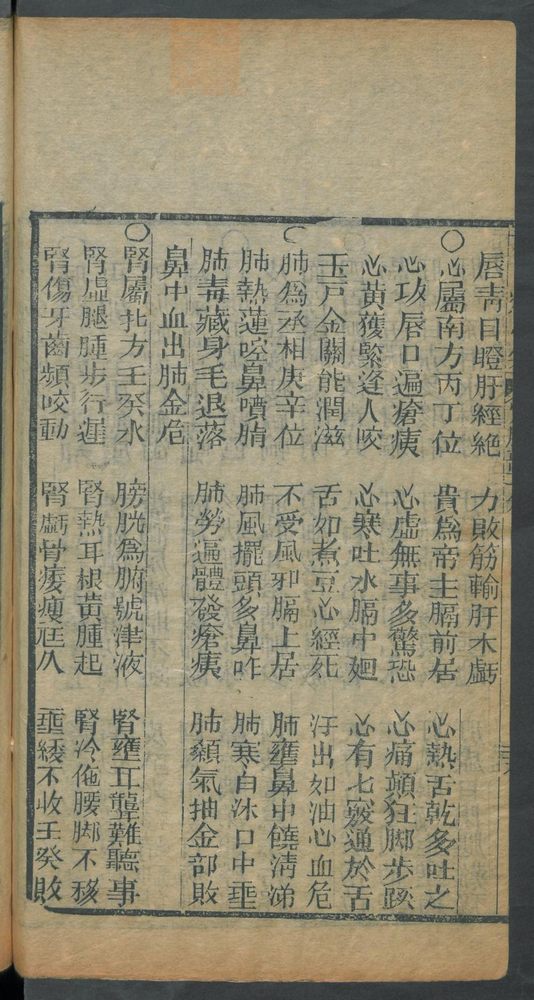 唇青目瞪肝經絶 力敗筋輸肝木虧
○心屬南方丙丁位 貴爲帝主膈前居 心熱舌乾多吐之
心攻唇口遍瘡痍 心虛無事多驚恐 心痛顛狂脚步蹊
心黄獲緊逢人咬 心寒吐水膈中廻 心有七竅通於舌
玉戸金關能潤滋 舌如煮豆心經死 汗出如油心血危
○肺爲丞相庚辛位 不受風邪膈上居 肺壅鼻中饒清涕
肺熱蓮啌鼻噴膿 肺風擺頭多鼻咋 肺寒白沐口中垂
肺毒藏身毛退落 肺勞遍體發瘡痍 肺顙氣抽金部敗
鼻中血出肺金危
○腎屬北方壬癸水 膀胱爲腑號津液 腎壅耳聾難聽事
腎虛腿腫步行遲 腎熱耳根黄腫起 腎冷佗腰脚不移
腎傷牙齒頻咬動 腎虧骨痿瘦尫人 垂縷不收壬癸敗